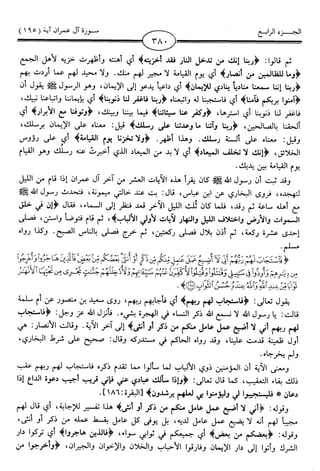 الجـــزء الرابـــع
٣٨٠
سـورة آل عمران آية (١٩٥)
ثم قالوا: ﴿ربنا إنك من تدخل النار فقد أخزيته﴾ أي أهنته وأظهرت خزيه لأهل الجمع
﴿وما للظالمين من أنصار﴾ أي يوم القيامة لا مجير لهم منك. ولا محيد لهم عما أردت بهم
﴿ربنا إننا سمعنا منادياً ينادي للإيمان﴾ أي داعياً يدعو إلى الإيمان، وهو الرسول ﷺ يقول أن
﴿آمنوا بربكم فآمنا﴾ أي فاستجبنا له واتبعناه ﴿ربنا فاغفر لنا ذنوبنا﴾ أي بإيماننا واتباعنا نبيك،
فاغفر لنا ذنوبنا أي استرها، ﴿وكفر عنا سيئاتنا﴾ فيما بيننا وبينك، ﴿وتوفنا مع الأبرار﴾ أي
ألحقنا بالصالحين، ﴿ربنا وآتنا ما وعدتنا على رسلك﴾ قيل: معناه على الإيمان برسلك،
وقيل: معناه على ألسنة رسلك. وهذا أظهر. ﴿ولا تخزنا يوم القيامة﴾ أي على رؤوس
الخلائق، ﴿إنك لا تخلف الميعاد﴾ أي لا بد من الميعاد الذي أخبرت عنه رسلك وهو القيام
يوم القيامة بين يديك.
وقد ثبت أن رسول الله ﷺ كان يقرأ هذه الآيات العشر من آخر آل عمران إذا قام من الليل
لتهجده، فروى البخاري عن ابن عباس، قال: بت عند خالتي ميمونة، فتحدث رسول الله ﷺ
مع أهله ساعة ثم رقد، فلما كان ثلث الليل الآخر قعد فنظر إلى السماء، فقال ﴿إن في خلق
السموات والأرض واختلاف الليل والنهار لآيات لأولي الألباب﴾، ثم قام فتوضأ واستن، فصلى
إحدى عشرة ركعة، ثم أذن بلال فصلى ركعتين، ثم خرج فصلى بالناس الصبح. وكذا رواه
مسلم.
فَاسْتَجَابَ لَهُمْ رَبُّهُمْ أَنِّي لَا أُضِيعُ عَمَلَ عَامِلٍ مِنْكُمْ مِنْ ذَكَرٍ أَوْ أُنْثَى بَعْضُكُمْ مِنْ بَعْضٍ فَالَّذِينَ هَاجَرُوا وَأُخْرِجُوا
مِنْ دِيَارِهِمْ وَأُوذُوا فِي سَبِيلِي وَقَاتَلُوا وَقُتِلُوا لَأُكَفِّرَنَّ عَنْهُمْ سَيِّئَاتِهِمْ وَلَأُدْخِلَنَّهُمْ جَنَّاتٍ تَجْرِي مِنْ تَحْتِهَا الْأَنْهَارُ
ثَوَابًا مِنْ عِنْدِ اللَّهِ وَاللَّهُ عِنْدَهُ حُسْنُ الثَّوَابِ
يقول تعالى: ﴿فاستجاب لهم ربهم﴾ أي فأجابهم ربهم، روى سعيد بن منصور عن أم سلمة
قالت: يا رسول الله لا نسمع الله ذكر النساء في الهجرة بشيء. فأنزل الله عز وجل: ﴿فاستجاب
لهم ربهم أني لا أضيع عمل عامل منكم من ذكر أو أنثى﴾ إلى آخر الآية. وقالت الأنصار: هي
أول ظعينة قدمت علينا، وقد رواه الحاكم في مستدركه وقال: صحيح على شرط البخاري،
ولم يخرجاه.
ومعنى الآية أن المؤمنين ذوي الألباب لما سألوا مما تقدم ذكره فاستجاب لهم ربهم عقب
ذلك بفاء التعقيب، كما قال تعالى: ﴿وإذا سألك عبادي عني فإني قريب أجيب دعوة الداع إذا
دعان * فليستجيبوا لي وليؤمنوا بي لعلهم يرشدون﴾ [البقرة:١٨٦].
وقوله: ﴿أني لا أضيع عمل عامل منكم من ذكر أو أنثى﴾ هذا تفسير للإجابة، أي قال لهم
مجيباً لهم أنه لا يضيع عمل عامل لديه، بل يوفي كل عامل بقسط عمله من ذكر أو أنثى،
وقوله: ﴿بعضكم من بعض﴾ أي جميعكم في ثوابي سواء، ﴿فالذين هاجروا﴾ أي تركوا دار
الشرك وأتوا إلى دار الإيمان وفارقوا الأحباب والخلان والإخوان والجيران، ﴿وأخرجوا من